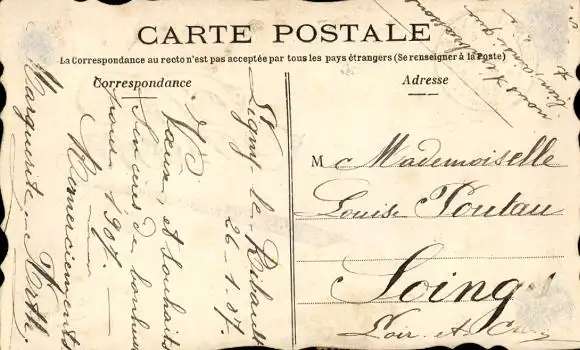 CARTE POSTALE
La Correspondance au recto n'est pas acceptée par tous les pays étrangers (Se renseigner à la Poste)
Correspondance
Adresse
Ligny-le-Ribault
26-1-07.
Vœux, et souhaits
Sincères de bonheur
pour 1907.
Remerciements
Marguerite
M Mademoiselle
Louise Poutau
Soing
Loir et Cher
nous